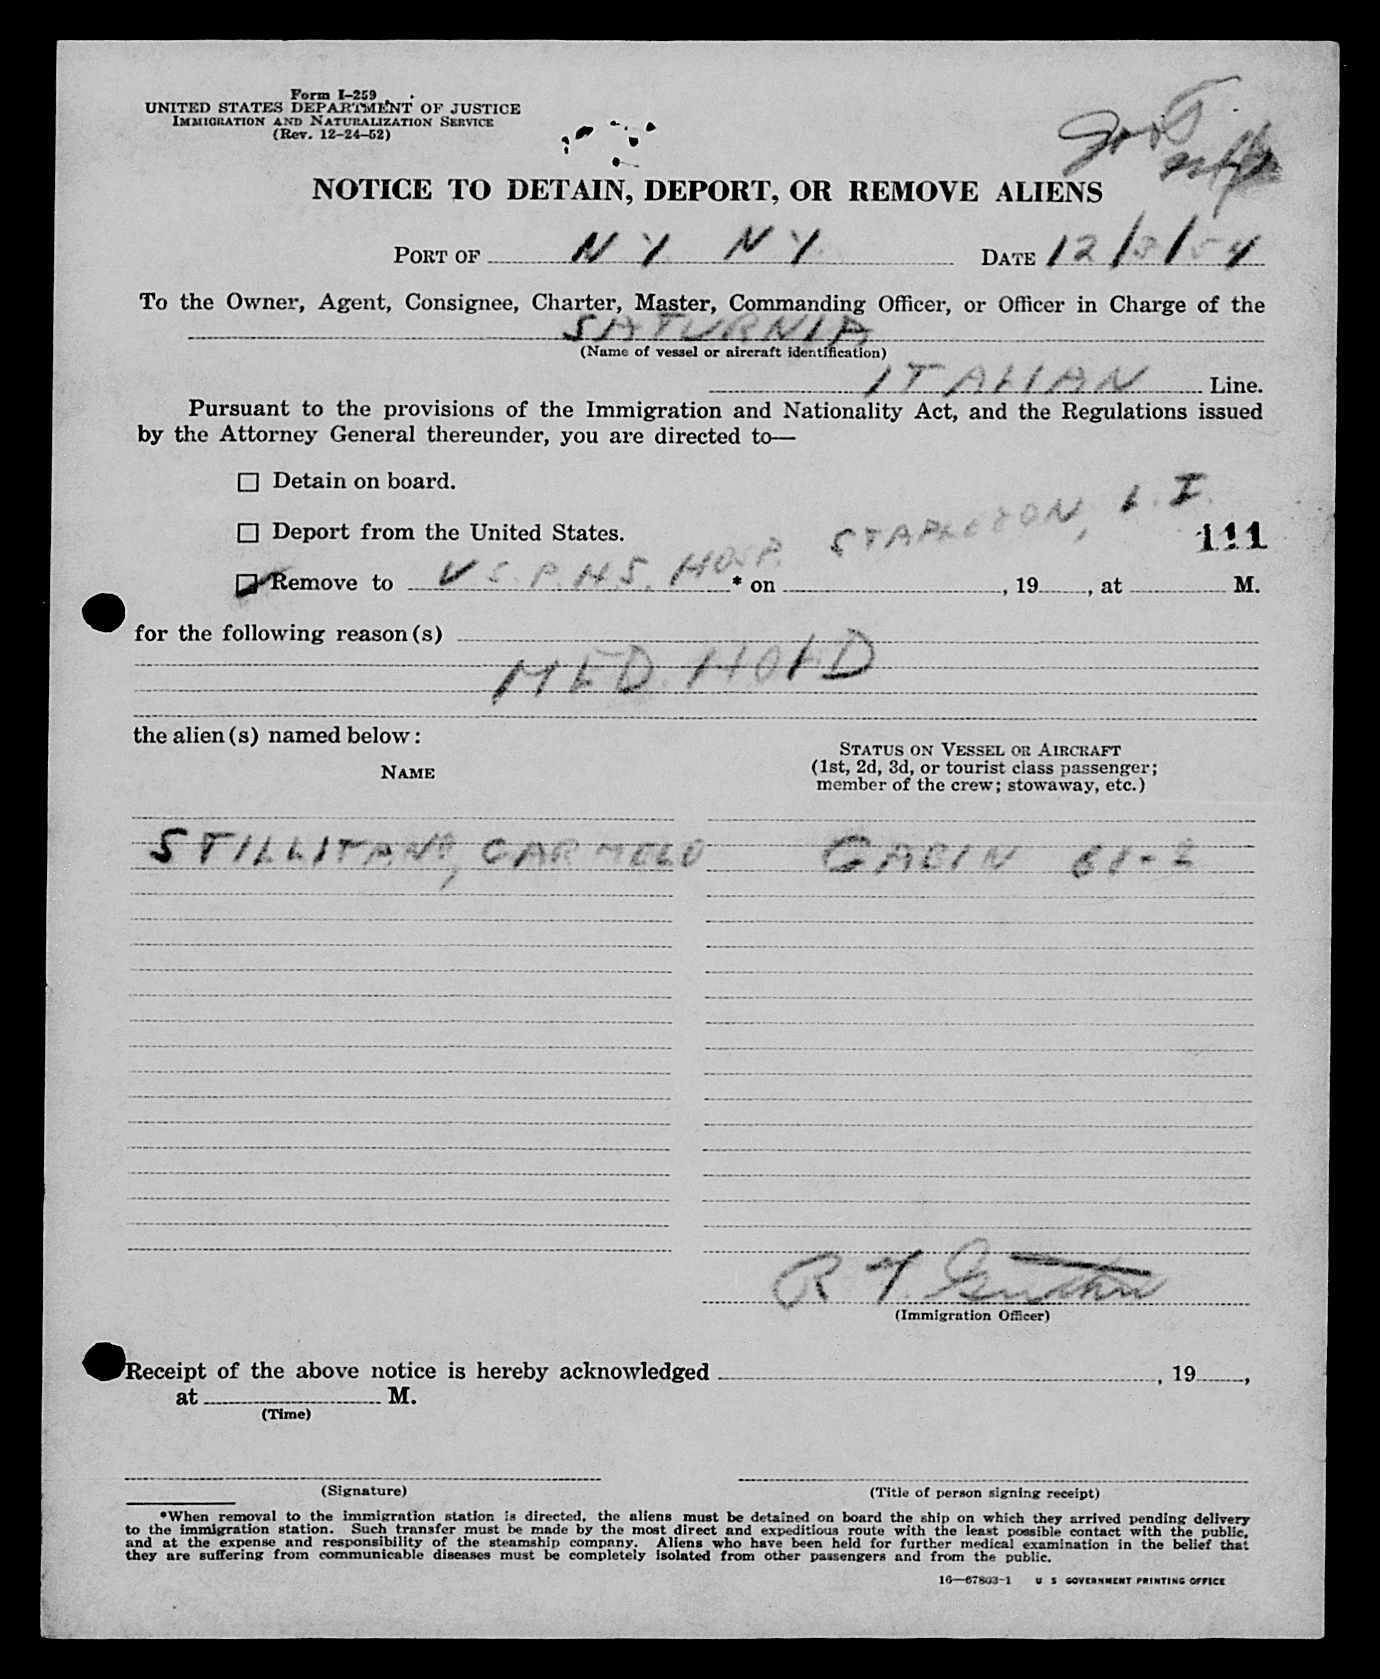 Form I-259
UNITED STATES DEPARTMENT OF JUSTICE
IMMIGRATION AND NATURALIZATION SERVICE
(Rev. 12-24-52)
NOTICE TO DETAIN, DEPORT, OR REMOVE ALIENS
PORT OF N Y. N Y. DATE 12/3/54
To the Owner, Agent, Consignee, Charter, Master, Commanding Officer, or Officer in Charge of the
SATURNIA
(Name of vessel or aircraft identification)
ITALIAN Line.
Pursuant to the provisions of the Immigration and Nationality Act, and the Regulations issued
by the Attorney General thereunder, you are directed to—
Detain on board.
STAPLETON, L. I.
Deport from the United States. 111
Remove to U S. P. H. S. HOSP. * on , 19 , at M.
for the following reason(s)
MED. HOLD
the alien(s) named below:
STATUS ON VESSEL OR AIRCRAFT
NAME (1st, 2d, 3d, or tourist class passenger;
member of the crew; stowaway, etc.)
STILLITANO, CARMELO CABIN 61-2
R Y.
(Immigration Officer)
Receipt of the above notice is hereby acknowledged , 19 ,
at M.
(Time)
(Signature) (Title of person signing receipt)
*When removal to the immigration station is directed, the aliens must be detained on board the ship on which they arrived pending delivery
to the immigration station. Such transfer must be made by the most direct and expeditious route with the least possible contact with the public,
and at the expense and responsibility of the steamship company. Aliens who have been held for further medical examination in the belief that
they are suffering from communicable diseases must be completely isolated from other passengers and from the public.
16—67803-1 U S GOVERNMENT PRINTING OFFICE